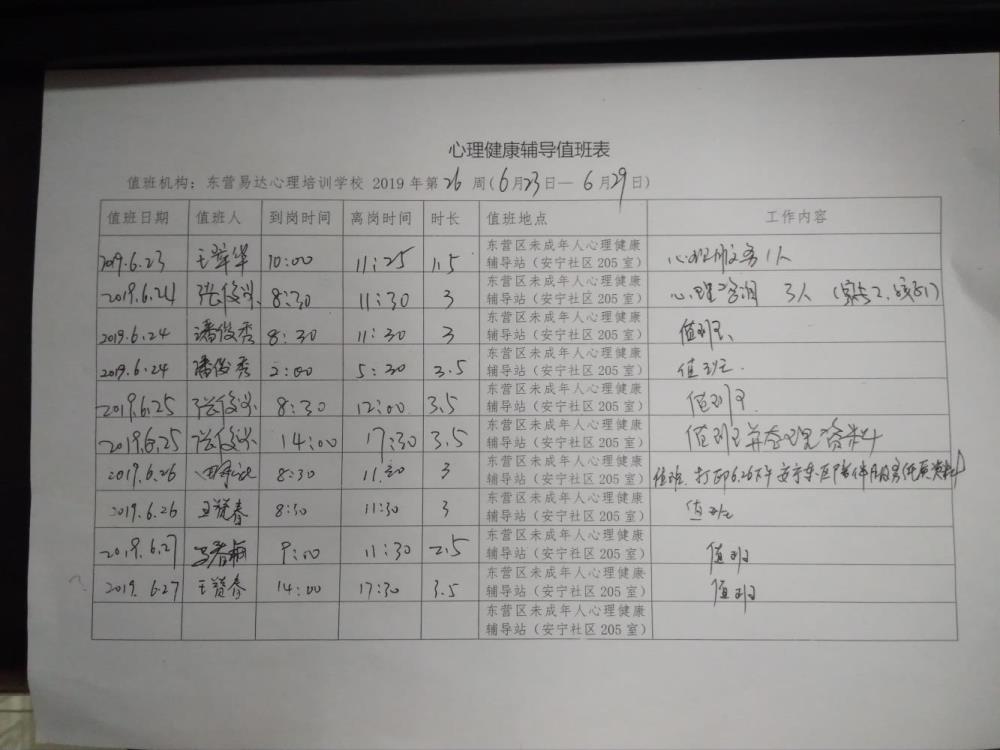 心理健康辅导值班表
值班机构：东营易达心理培训学校 2019 年第 26 周（6月23日— 6月29日）
值班日期 值班人 到岗时间 离岗时间 时长 值班地点 工作内容
2019.6.23 10:00 11:25 1.5 东营区未成年人心理健康
辅导站（安宁社区 205 室） 心理 1人
2019.6.24 8:30 11:30 3 东营区未成年人心理健康
辅导站（安宁社区 205 室） 心理咨询 3人
2019.6.24 潘俊秀 8:30 11:30 3 东营区未成年人心理健康
辅导站（安宁社区 205 室） 值班、
2019.6.24 潘俊秀 2:00 5:30 3.5 东营区未成年人心理健康
辅导站（安宁社区 205 室） 值班.
2019.6.25 8:30 12:00 3.5 东营区未成年人心理健康
辅导站（安宁社区 205 室） 值班
2019.6.25 14:00 17:30 3.5 东营区未成年人心理健康
辅导站（安宁社区 205 室） 值班并整理资料
2019.6.26 8:30 11:30 3 东营区未成年人心理健康
辅导站（安宁社区 205 室） 值班. 打印6.26下午 资料
2019.6.26 王赞春 8:30 11:30 3 东营区未成年人心理健康
辅导站（安宁社区 205 室） 值班
2019.6.27 9:00 11:30 2.5 东营区未成年人心理健康
辅导站（安宁社区 205 室） 值班
2019.6.27 王赞春 14:00 17:30 3.5 东营区未成年人心理健康
辅导站（安宁社区 205 室） 值班
东营区未成年人心理健康
辅导站（安宁社区 205 室）